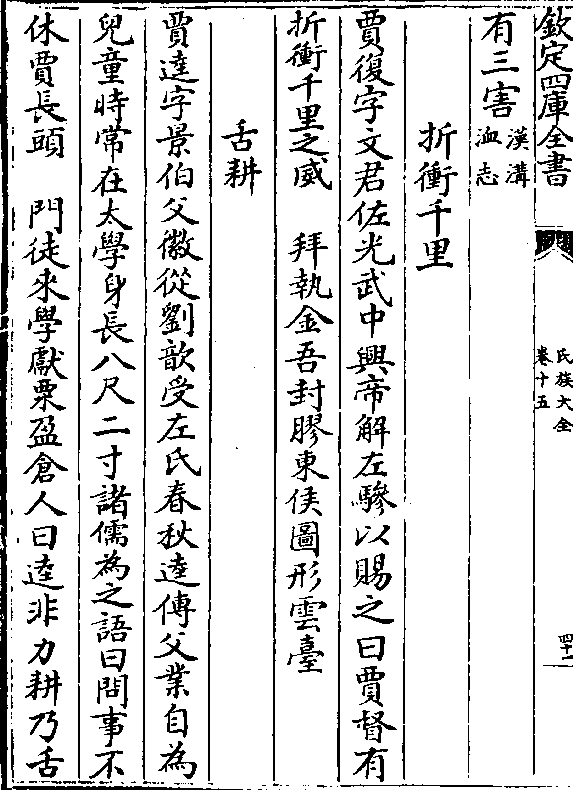 欽定四庫全書
氏族大全
卷十五
四十一
有三害漢溝
洫志
折衝千里
賈復字文君佐光武中興帝解左驂以賜之曰賈督有
折衝千里之威　拜執金吾封膠東侯圖形雲臺
舌耕
賈逵字景伯父徽從劉歆受左氏春秋逵傳父業自為
兒童時常在太學身長八尺二寸諸儒為之語曰問事不
休賈長頭　門徒來學獻粟盈倉人曰逵非力耕乃舌